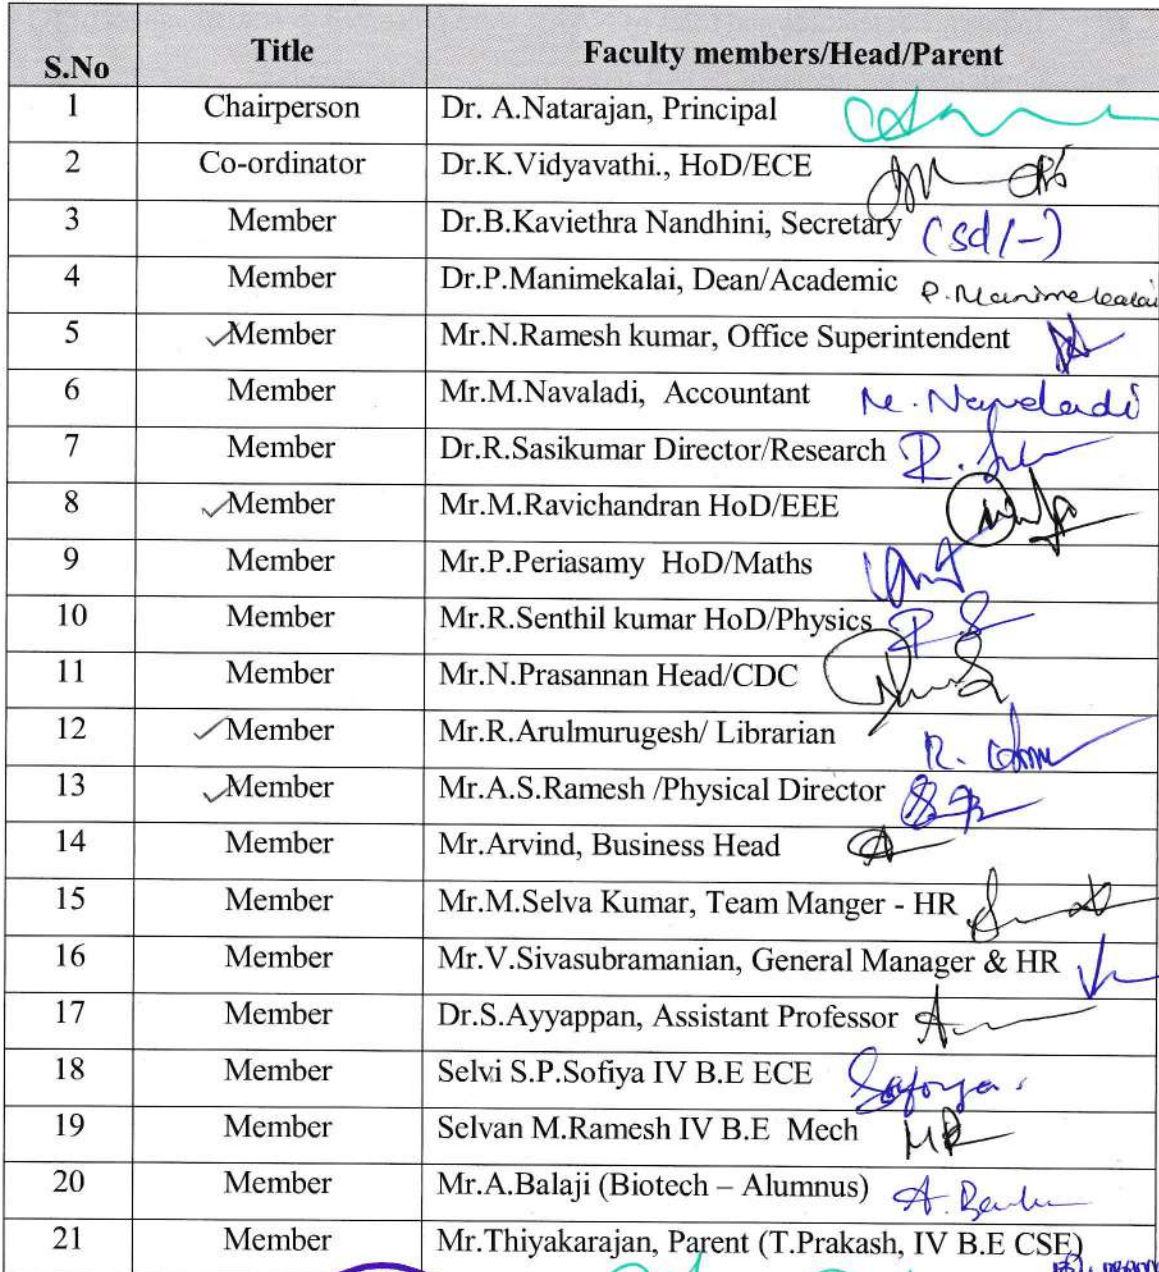 S.No Title Faculty members/Head/Parent
1 Chairperson Dr. A.Natarajan, Principal
2 Co-ordinator Dr.K.Vidyavathi., HoD/ECE
3 Member Dr.B.Kaviethra Nandhini, Secretary (sd/-)
4 Member Dr.P.Manimekalai, Dean/Academic P. Manimekalai
5 Member Mr.N.Ramesh kumar, Office Superintendent
6 Member Mr.M.Navaladi, Accountant M. Navaladi
7 Member Dr.R.Sasikumar Director/Research
8 Member Mr.M.Ravichandran HoD/EEE
9 Member Mr.P.Periasamy HoD/Maths
10 Member Mr.R.Senthil kumar HoD/Physics
11 Member Mr.N.Prasannan Head/CDC
12 Member Mr.R.Arulmurugesh/ Librarian
13 Member Mr.A.S.Ramesh /Physical Director
14 Member Mr.Arvind, Business Head
15 Member Mr.M.Selva Kumar, Team Manger - HR
16 Member Mr.V.Sivasubramanian, General Manager & HR
17 Member Dr.S.Ayyappan, Assistant Professor
18 Member Selvi S.P.Sofiya IV B.E ECE
19 Member Selvan M.Ramesh IV B.E Mech
20 Member Mr.A.Balaji (Biotech – Alumnus)
21 Member Mr.Thiyakarajan, Parent (T.Prakash, IV B.E CSE)